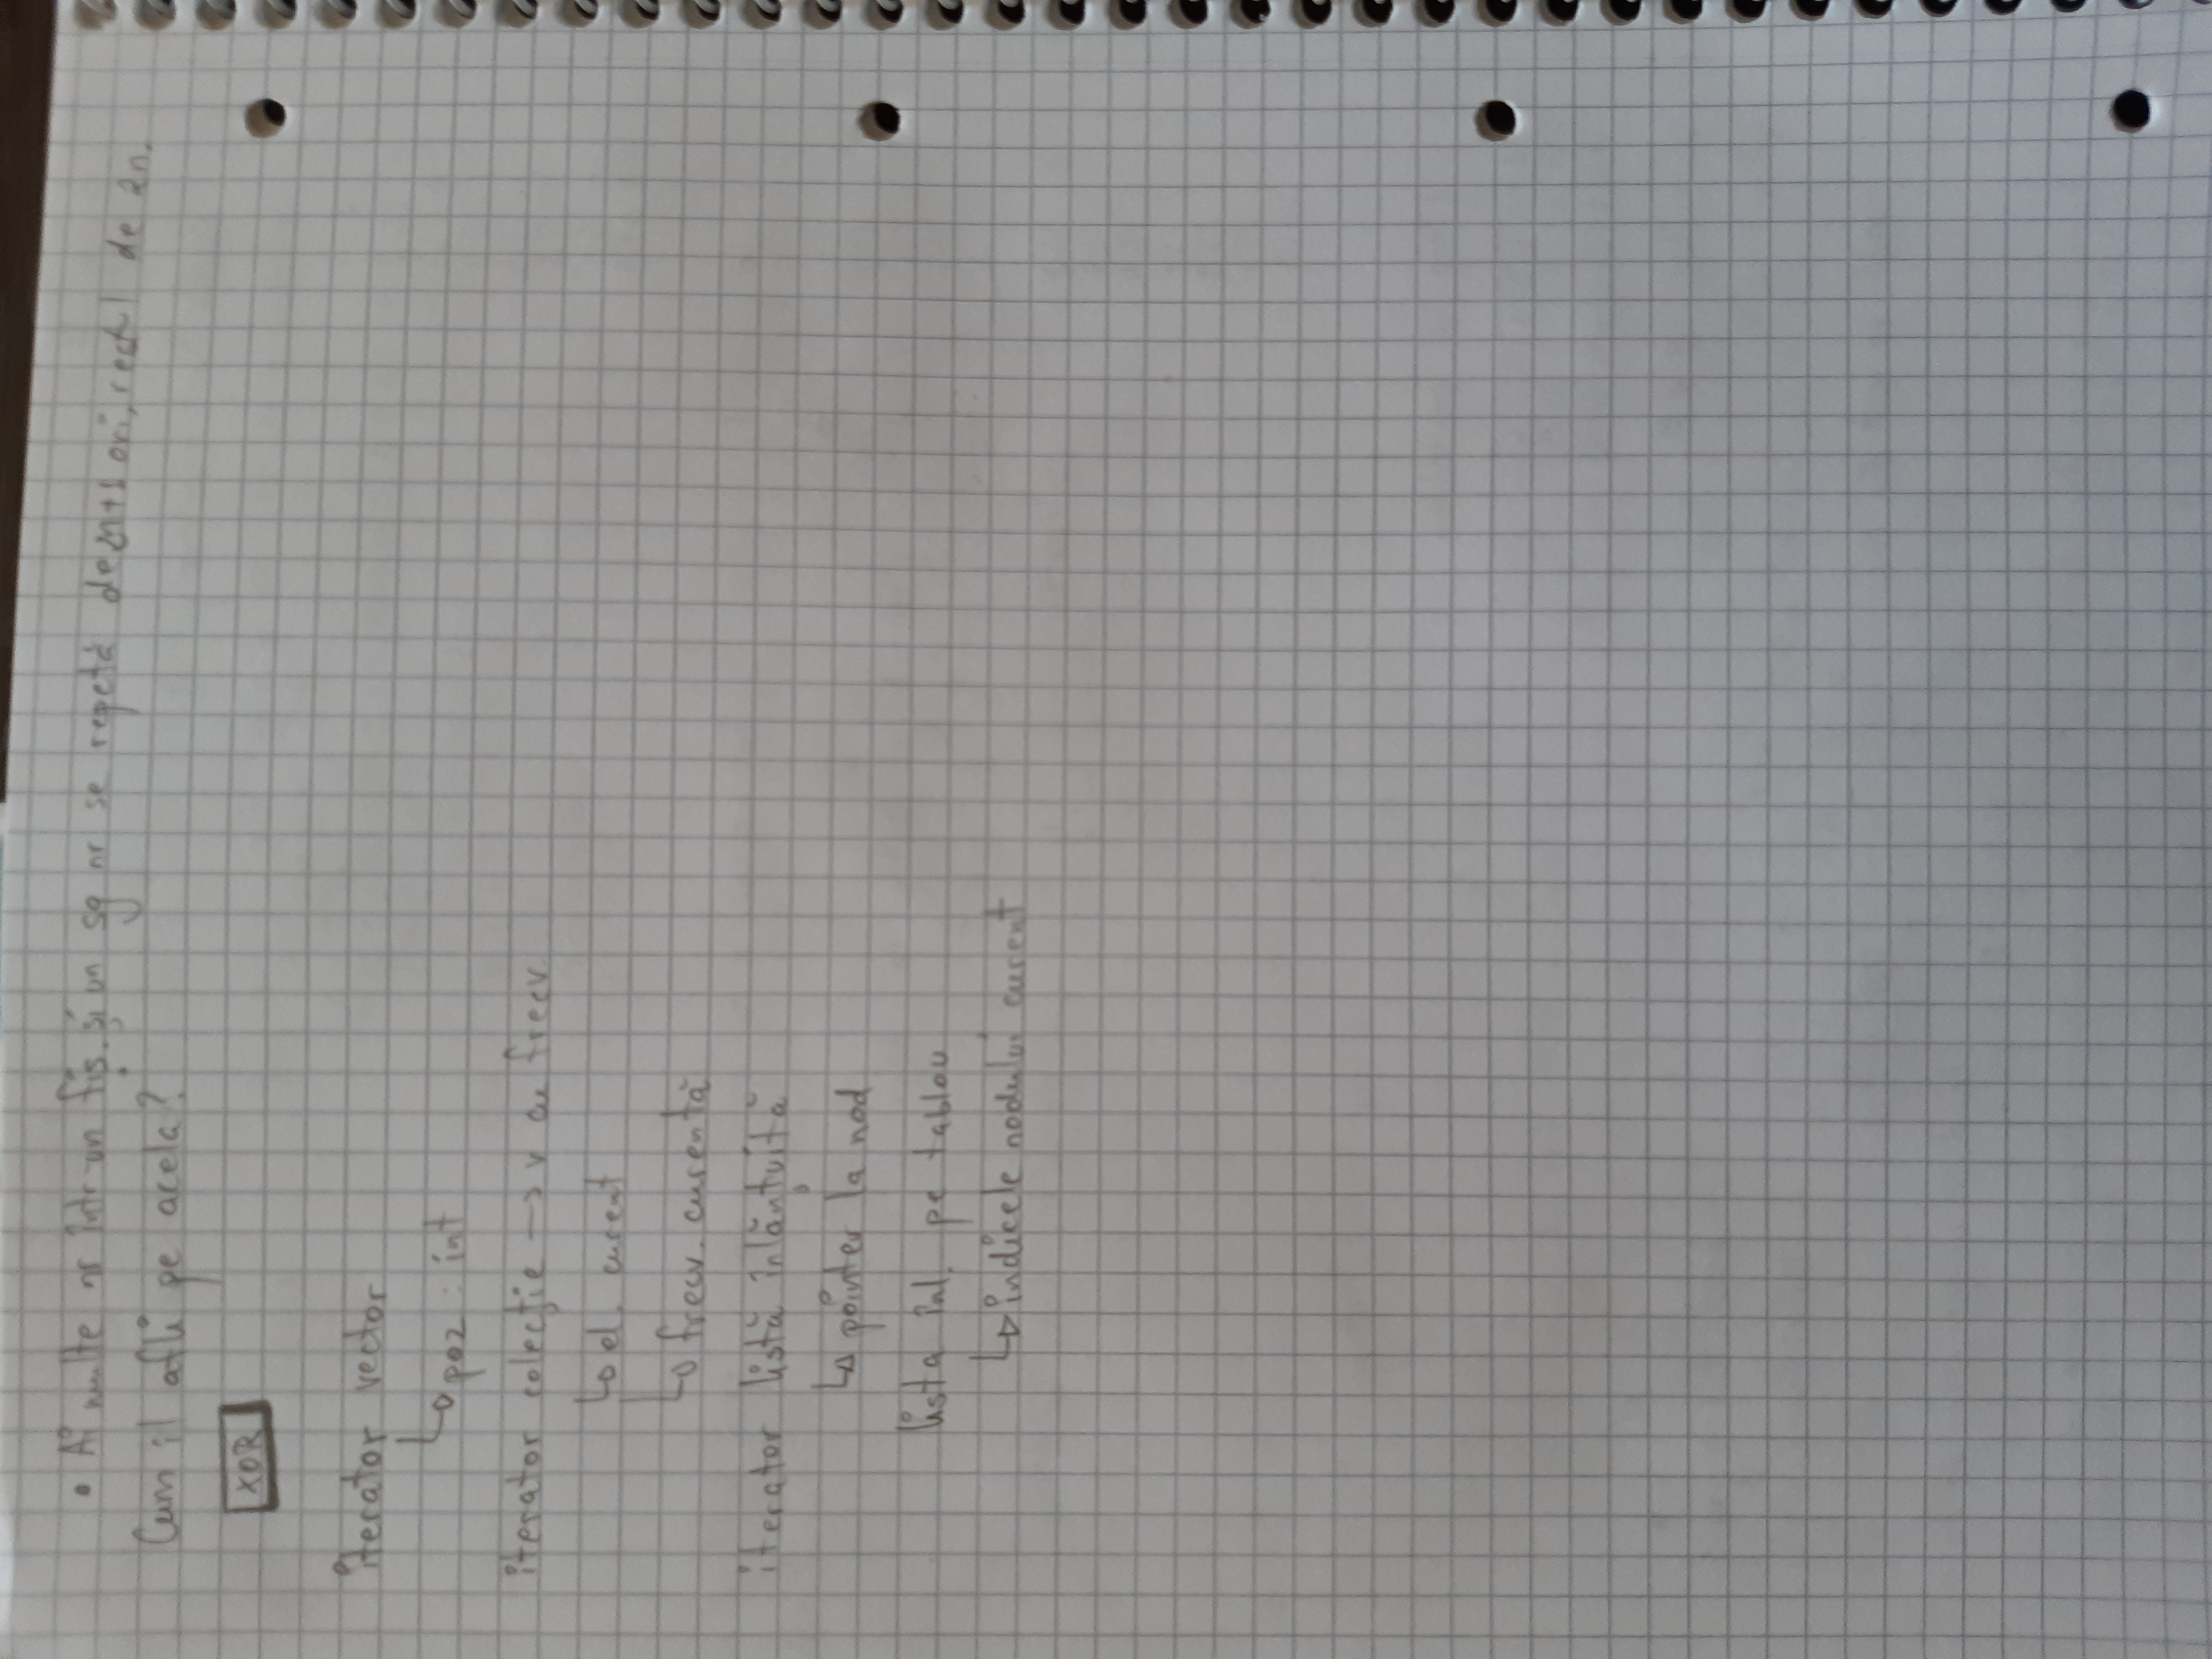 • Ai multe nr într-un fiș. și un sg nr se repetă de 2n+1 ori, restul de 2n.
Cum il afli pe acela?
XOR
iterator vector
poz : int
iterator colecție -> v cu frecv.
el. curent
frecv. curentă
iterator listă înlănțuită
pointer la nod
lista înl. pe tablou
indicele nodului curent